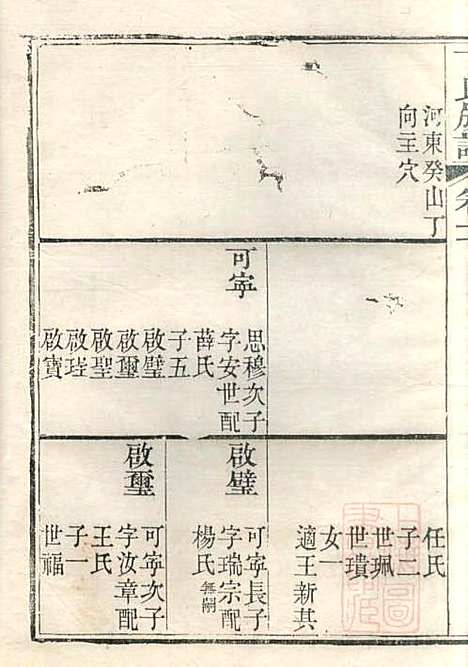 氏族譜
河東癸山丁
向主穴
可寧
思穆次子
字安世配
薛氏
子五
啟璧
啟璽
啟聖
啟瑳
啟寶
任氏
子二
世珮
世璝
女一
適王新其
啟璧
可寧長子
字瑞宗配
楊氏無嗣
啟璽
可寧次子
字汝章配
王氏
子一
世福